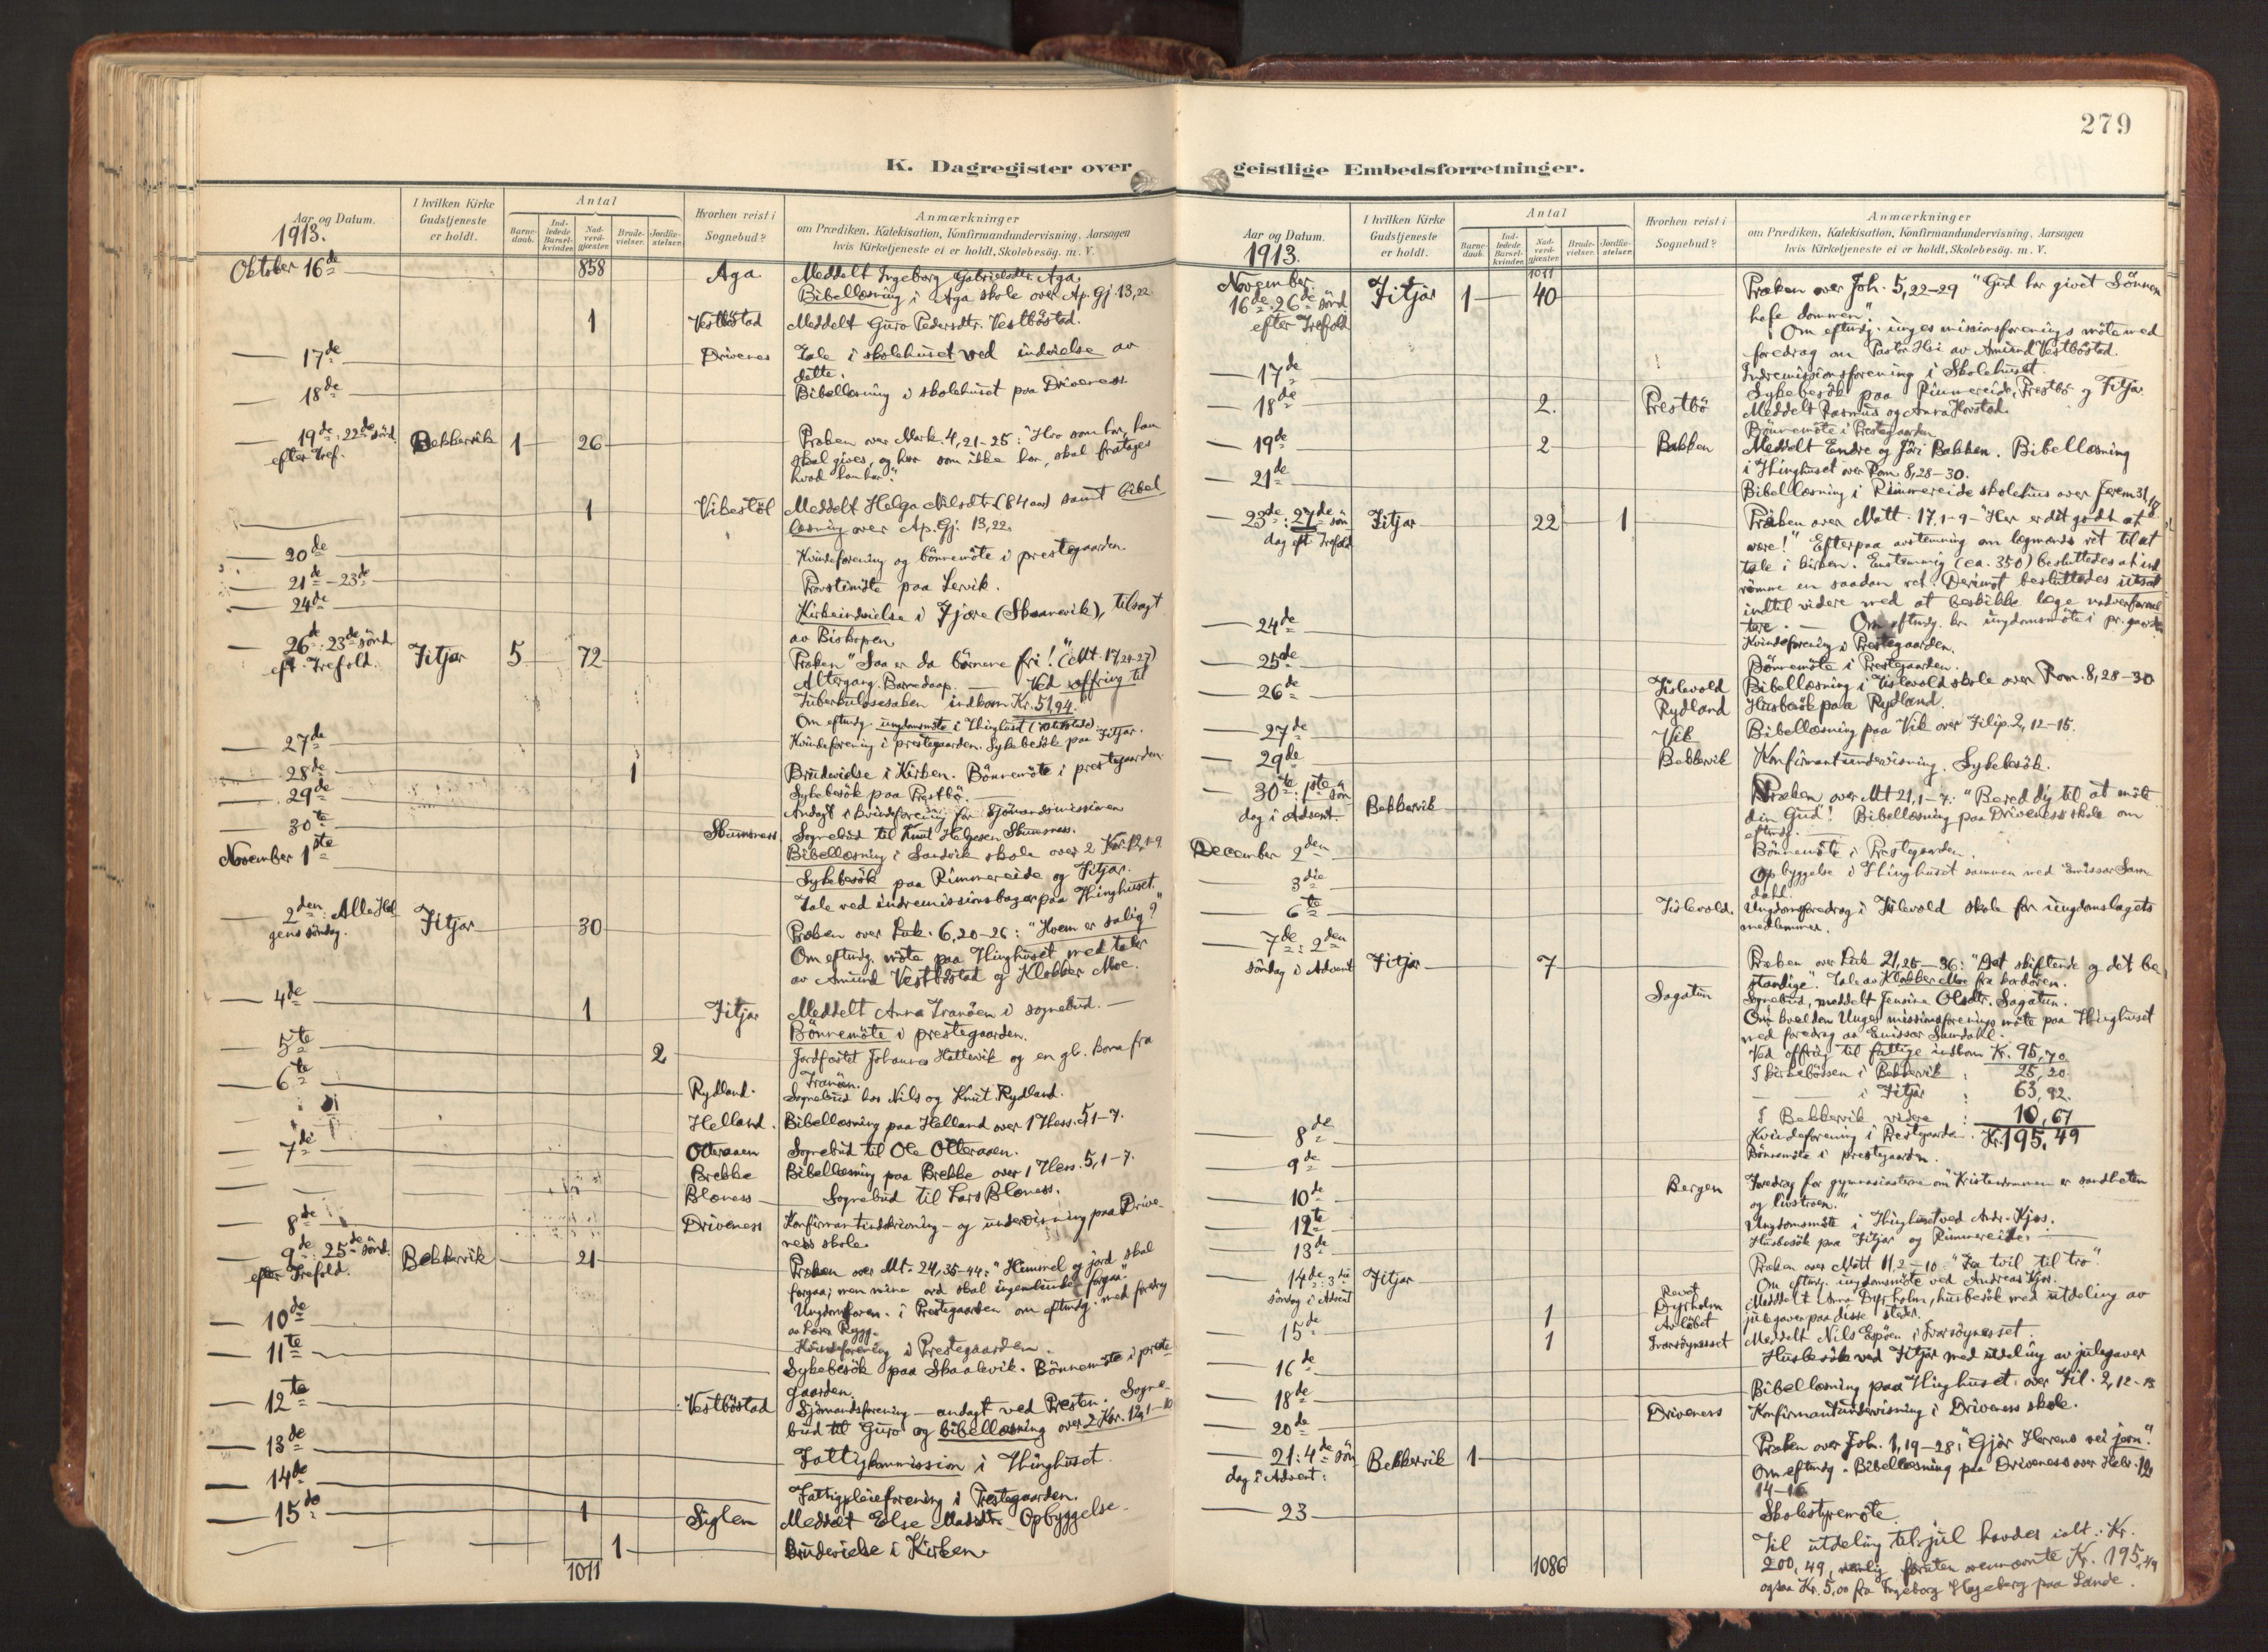 K. Dagregister over
Aar og Datum.
1913.
I hvilken Kirke
Gudstjeneste
er holdt.
Antal
Barne-
daab.
Ind-
ledede
Barsel-
kvinder
Nad-
verd-
gjæster
Brude-
vielser.
Jordfæ-
stelser.
Hvorhen reist i
Sognebud?
Anmærkninger
om Prædiken, Katekisation, Konfirmandundervisning, Aarsagen
hvis Kirketjeneste ei er holdt, Skolebesög. m. V.
Oktober 16de 858 Aga Meddelt Ingeborg Gabrielsdtr. Aga.
Bibellæsning i Aga skole over Ap. Gj. 13,22
1 Vestböstad Meddelt Guro Pedersdtr. Vestböstad.
17de Drivenes Tale i skolehuset ved indvielse av
dette.
18de Bibellæsning i skolehuset paa Driveness.
19de: 22de sönd. efter Tref. Bekkervik 1 26 Præken over Mark. 4,21-25: "Hvo som har, ham
skal gives, og hvo som ikke har, skal fratages
hvad han har".
1 Vikestöl Meddelt Helga Nilsdtr (84 aar) samt bibel
læsning over Ap. Gj. 13,22.
20de Kvindeforening og bönnemöte i prestegaarden.
21de-23de Provstimöte paa Lervik.
24de Kirkeindvielse i Fjære (Skaanevik), tilsagt
av Biskopen.
26de: 23de sönd. eft. Trefold. Fitjar 5 72 Præken "Saa er da börnene fri!" (Mt. 17,24-27)
Altergang. Barnedaap. Ved offring til
Tuberkulosesaken indkom Kr. 51,94.
Om eftmdg. ungdomsmöte i Thinghuset
27de Kvindeforening i prestegaarden. Sykebesök paa Fitjar.
28de 1 Brudevielse i Kirken. Bönnemöte i prestegaarden.
29de Sykebesök paa Prestbö.
30te Andagt i kvindeforening for Sjömandsmissionen
Skumsness Sognebud til Knut Helgesen Skumsness.
November 1ste Bibellæsning i Sandvik skole over 2 Kor. 12,1-9
Sykebesök paa Rimmereide og Fitjar.
Tale ved indremissionsbazar paa Thinghuset.
2den: Alle Hel gens söndag. Fitjar 30 Præken over Luk. 6,20-26: "Hvem er salig?"
Om eftmdg. möte paa Thinghuset med taler
av Amund Vestböstad og Klokker Moe.
4de 1 Fitjar Meddelt Anna Tranöen i sognebud.
Bönnemöte i prestegaarden.
5te 2 Jordfæstet Johannes Hattevik og en gl. kone fra
Tranöen.
6te Rydland. Sognebud hos Nils og Knut Rydland.
Helland. Bibellæsning paa Helland over 1 Thess. 5,1-7.
7de Otteraaen Sognebud til Ole Otteraaen.
Brekke Bibellæsning paa Brekke over 1 Thess. 5,1-7.
Bloness Sognebud til Lars Bloness.
8de Driveness Konfirmantindskrivning - og undervisning paa Drive-
ness skole.
9de: 25de sönd. efter Trefold. Bekkervik 21 Præken over Mt. 24,35-44: "Himmel og jord skal
forgaa; men mine ord skal ingenlunde forgaa".
Ungdomsforen. i Prestegaarden om eftmdg. med foredrag
av Lærer Rygg.
10de Kvindeforening i Prestegaarden.
11te Sykebesök paa Skaalevik. Bönnemöte i preste-
gaarden.
12te Vestböstad Sjömandsforening - andagt ved Presten. Sogne-
bud til Guro og bibellæsning over 2 Kor. 12,1-10
13de Fattigkommission i Thinghuset.
14de Fattigpleieforening i Prestegaarden.
15de 1 Siglen Meddelt Else Madsdtr. Opbyggelse.
1 Brudevielse i Kirken.
1011
279
geistlige Embedsforretninger.
Aar og Datum.
1913.
I hvilken Kirke
Gudstjeneste
er holdt.
Antal
Barne-
daab.
Ind-
ledede
Barsel-
kvinder
Nad-
verd-
gjæster
Brude-
vielser.
Jordfæ-
stelser.
Hvorhen reist i
Sognebud?
Anmærkninger
om Prædiken, Katekisation, Konfirmandundervisning, Aarsagen
hvis Kirketjeneste ei er holdt, Skolebesög. m. V.
1011
November. 16de: 26de sönd. efter Trefold Fitjar 1 40 Præken over Joh. 5,22-29 "Gud har givet Sönnen
hele dommen".
Om eftmdg. unges missionsforenings möte med
foredrag om Pastor Hsi av Amund Vestböstad.
17de Indremissionsforening i Skolehuset.
Sykebesök paa Rimmereide, Prestbö og Fitjar.
18de 2. Prestbö Meddelt Rasmus og Anna Hovstad.
Bönnemöte i Prestegaarden.
19de 2 Bakken Meddelt Endre og Jöri Bakken. Bibellæsning
i Thinghuset over Rom. 8,28-30.
21de Bibellæsning i Rimmereide skolehus over Jerem 31,
23de: 27de sön dag eft. Trefold Fitjar 22 1 Præken over Matt. 17,1-9 - "Her er det godt at
være!" Efterpaa avstemning om lægmænds ret til at
tale i kirken. Enstemmig (ca. 350) besluttedes at ind
römme en saadan ret. Derimot besluttedes utsat
indtil videre med at beskikke læge nadverforval
tere. Om eftmdg. kr. ungdomsmöte i pr. gaarden
24de Kvindeforening i Prestegaarden.
25de Bönnemöte i Prestegaarden.
26de Tislevold Bibellæsning i Tislevold skole over Rom. 8,28-30
Rydland Husbesök paa Rydland.
27de Vik Bibellæsning paa Vik over Filip. 2,12-15.
29de Bekkervik Konfirmantundervisning. Sykebesök.
30te: 1ste sön dag i Advent. Bekkervik Præken over Mt 21,1-7: "Bered dig til at möte
din Gud"! Bibellæsning paa Driveness skole om
eftmdg.
December 2den Bönnemöte i Prestegaarden.
3die Opbyggelse i Thinghuset sammen med Emissær Sam-
dahl.
6te Tislevold. Ungdomsforedrag i Tislevold skole for ungdomslagets
medlemmer.
7de: 2den söndag i Advent Fitjar 7 Præken over Luk 21,25-36: "Det skiftende og det be-
standige". Tale av Klokker Moe fra kordören.
Sagatun Sognebud, meddelt Jensine Olsdtr. Sagatun.
Om kvelden Unges missionsforenings möte paa Thinghuset
med foredrag av Emissær Samdahl.
Ved offring til fattige indkom Kr. 95,70
I kirkebössen i Bekkervik : 25,20
i Fitjar : 63,92.
I Bekkervik videre : 10,67
Kr. 195,49
8de Kvindeforening i Prestegaarden.
9de Bönnemöte i prestegaarden.
10de Bergen Foredrag for gymnasiasterne om "Kristendommen er sandheten
og livstroen".
12te Ungdomsmöte i Thinghuset ved Andr. Kjos.
13de Husbesök paa Fitjar og Rimmereide.
14de: 3die söndag i Advent Fitjar Præken over Matt 11,2-10: "Fra tvil til tro".
Om eftmdg. ungdomsmöte ved Andreas Kjos.
15de 1 Dyrholm Meddelt Anna Dyrholm, husbesök med utdeling av
Avlöbet julegaver paa disse steder.
1 Ivarsöynesset Meddelt Nils Espöen i Ivarsöynesset.
16de Husbesök ved Fitjar med utdeling av julegaver
18de Bibellæsning paa Thinghuset over Fil. 2,12-13
20de Driveness Konfirmantundervisning i Driveness skole.
21: 4de sön dag i Advent: Bekkervik 1 Præken over Joh. 1,19-28: "Gjör Herrens vei jævn".
Om eftmdg. Bibellæsning paa Driveness over Hebr. 12,
14-16
23 Skolestyremöte
Til utdeling til jul havdes ialt: Kr.
200,49, nemlig foruten ovennævnte Kr. 195,49
ogsaa Kr. 5,00 fra Ingeborg Hageberg paa Lande.
1086